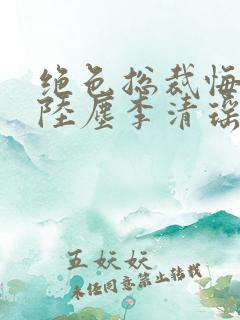 绝色总裁悔
陆尘李清瑶
五妖妖
未经同意禁止转载